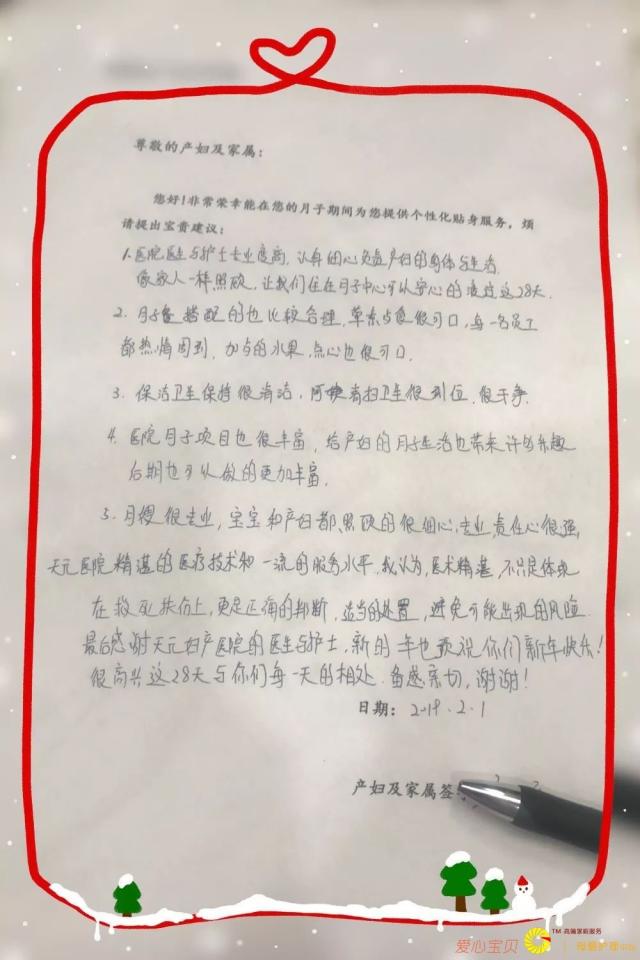 尊敬的产妇及家属：
您好!非常荣幸能在您的月子期间为您提供个性化贴身服务，烦
请提出宝贵建议：
1.医院医生与护士专业度高，认真细心负责产妇的身体与生产，
像家人一样照顾，让我们住在月子中心可以安心的渡过这28天.
2. 月子餐搭配的也比较合理，荤素与食很可口，每一名员工
都热情周到，加与的水果，点心也很可口.
3. 保洁卫生保持很清洁，阿姨清扫卫生很到位，很干净.
4. 医院月子项目也很丰富，给产妇的月子生活也带来许多乐趣
后期也可以做的更加丰富.
5. 月嫂很专业，宝宝和产妇都照顾的很细心，专业，责任心很强，
天元医院精湛的医疗技术和一流的服务水平，我认为，医术精湛，不只是体现
在救死扶伤上，更是正确的判断，适当的处置，避免可能出现的风险.
最后感谢天元妇产医院的医生与护士，新的一年也敢说你们新年快乐!
很高兴这28天与你们每一天的相处，备感亲切，谢谢!
日期：2019.2.1
产妇及家属签
爱心宝贝
TM 高端家庭服务
母婴护理中心